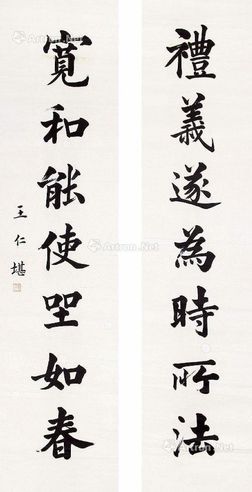 禮義遂為時所法
寬和能使望如春
王仁堪
Artron.Net
Artron.Net